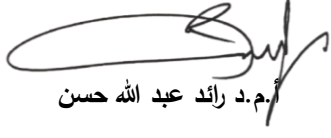 أ.م.د رائد عبد الله حسن